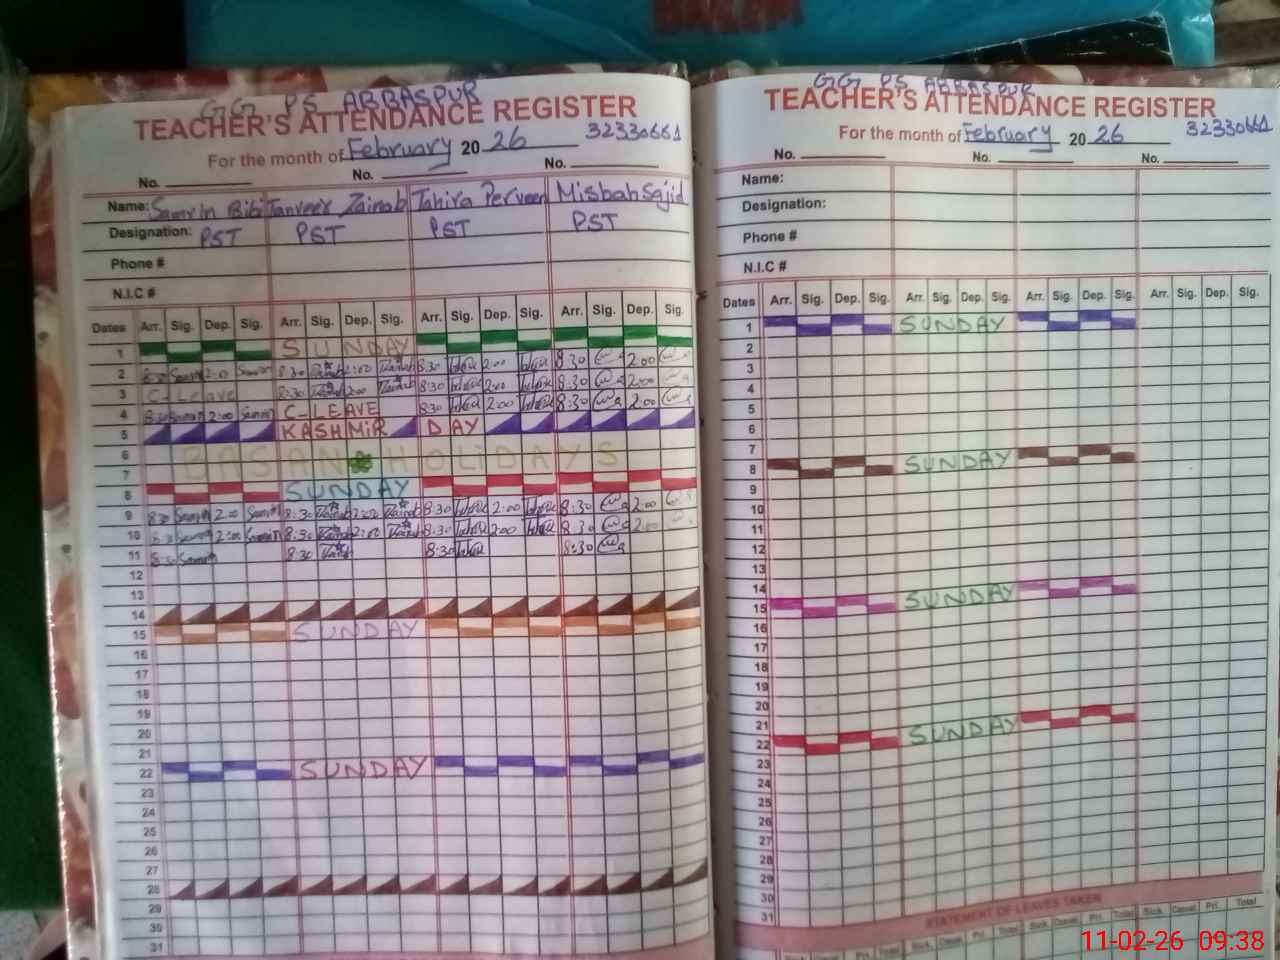 GG PS ABBASPUR
TEACHER'S ATTENDANCE REGISTER
For the month of February 20 26 32330661
No. No. No.
Name: Samrin Bibi Tanveer Zainab Tahira Perveen Misbah Sajid
Designation: PST PST PST PST
Phone #
N.I.C #
Dates Arr. Sig. Dep. Sig. Arr. Sig. Dep. Sig. Arr. Sig. Dep. Sig. Arr. Sig. Dep. Sig.
1 SUNDAY
2 8:30 Samrin 2:00 Samrin 8:30 Zainab 2:00 Zainab 8:30 2:00 8:30 2:00
3 C-Leave 8:30 Zainab 2:00 Zainab 8:30 2:00 8:30 2:00
4 8:30 Samrin 2:00 Samrin C-LEAVE 8:30 2:00 8:30 2:00
5 KASHMIR DAY
6 BASAN HOLIDAYS
7
8 SUNDAY
9 8:30 Samrin 2:00 Samrin 8:30 Zainab 2:00 Zainab 8:30 2:00 8:30 2:00
10 8:30 Samrin 2:00 Samrin 8:30 Zainab 2:00 Zainab 8:30 2:00 8:30 2:00
11 8:30 Samrin 8:30 Zainab 8:30 8:30
12
13
14
15 SUNDAY
16
17
18
19
20
21
22 SUNDAY
23
24
25
26
27
28
29
30
31
GG PS ABBASPUR
TEACHER'S ATTENDANCE REGISTER
For the month of February 20 26 32330661
No. No. No.
Name:
Designation:
Phone #
N.I.C #
Dates Arr. Sig. Dep. Sig. Arr. Sig. Dep. Sig. Arr. Sig. Dep. Sig. Arr. Sig. Dep. Sig.
1 SUNDAY
2
3
4
5
6
7
8 SUNDAY
9
10
11
12
13
14
15 SUNDAY
16
17
18
19
20
21
22 SUNDAY
23
24
25
26
27
28
29
30
31
STATEMENT OF LEAVES TAKEN
Sick. Casual Pri. Total Sick. Casual Pri. Total Sick. Casual Pri. Total
11-02-26 09:38